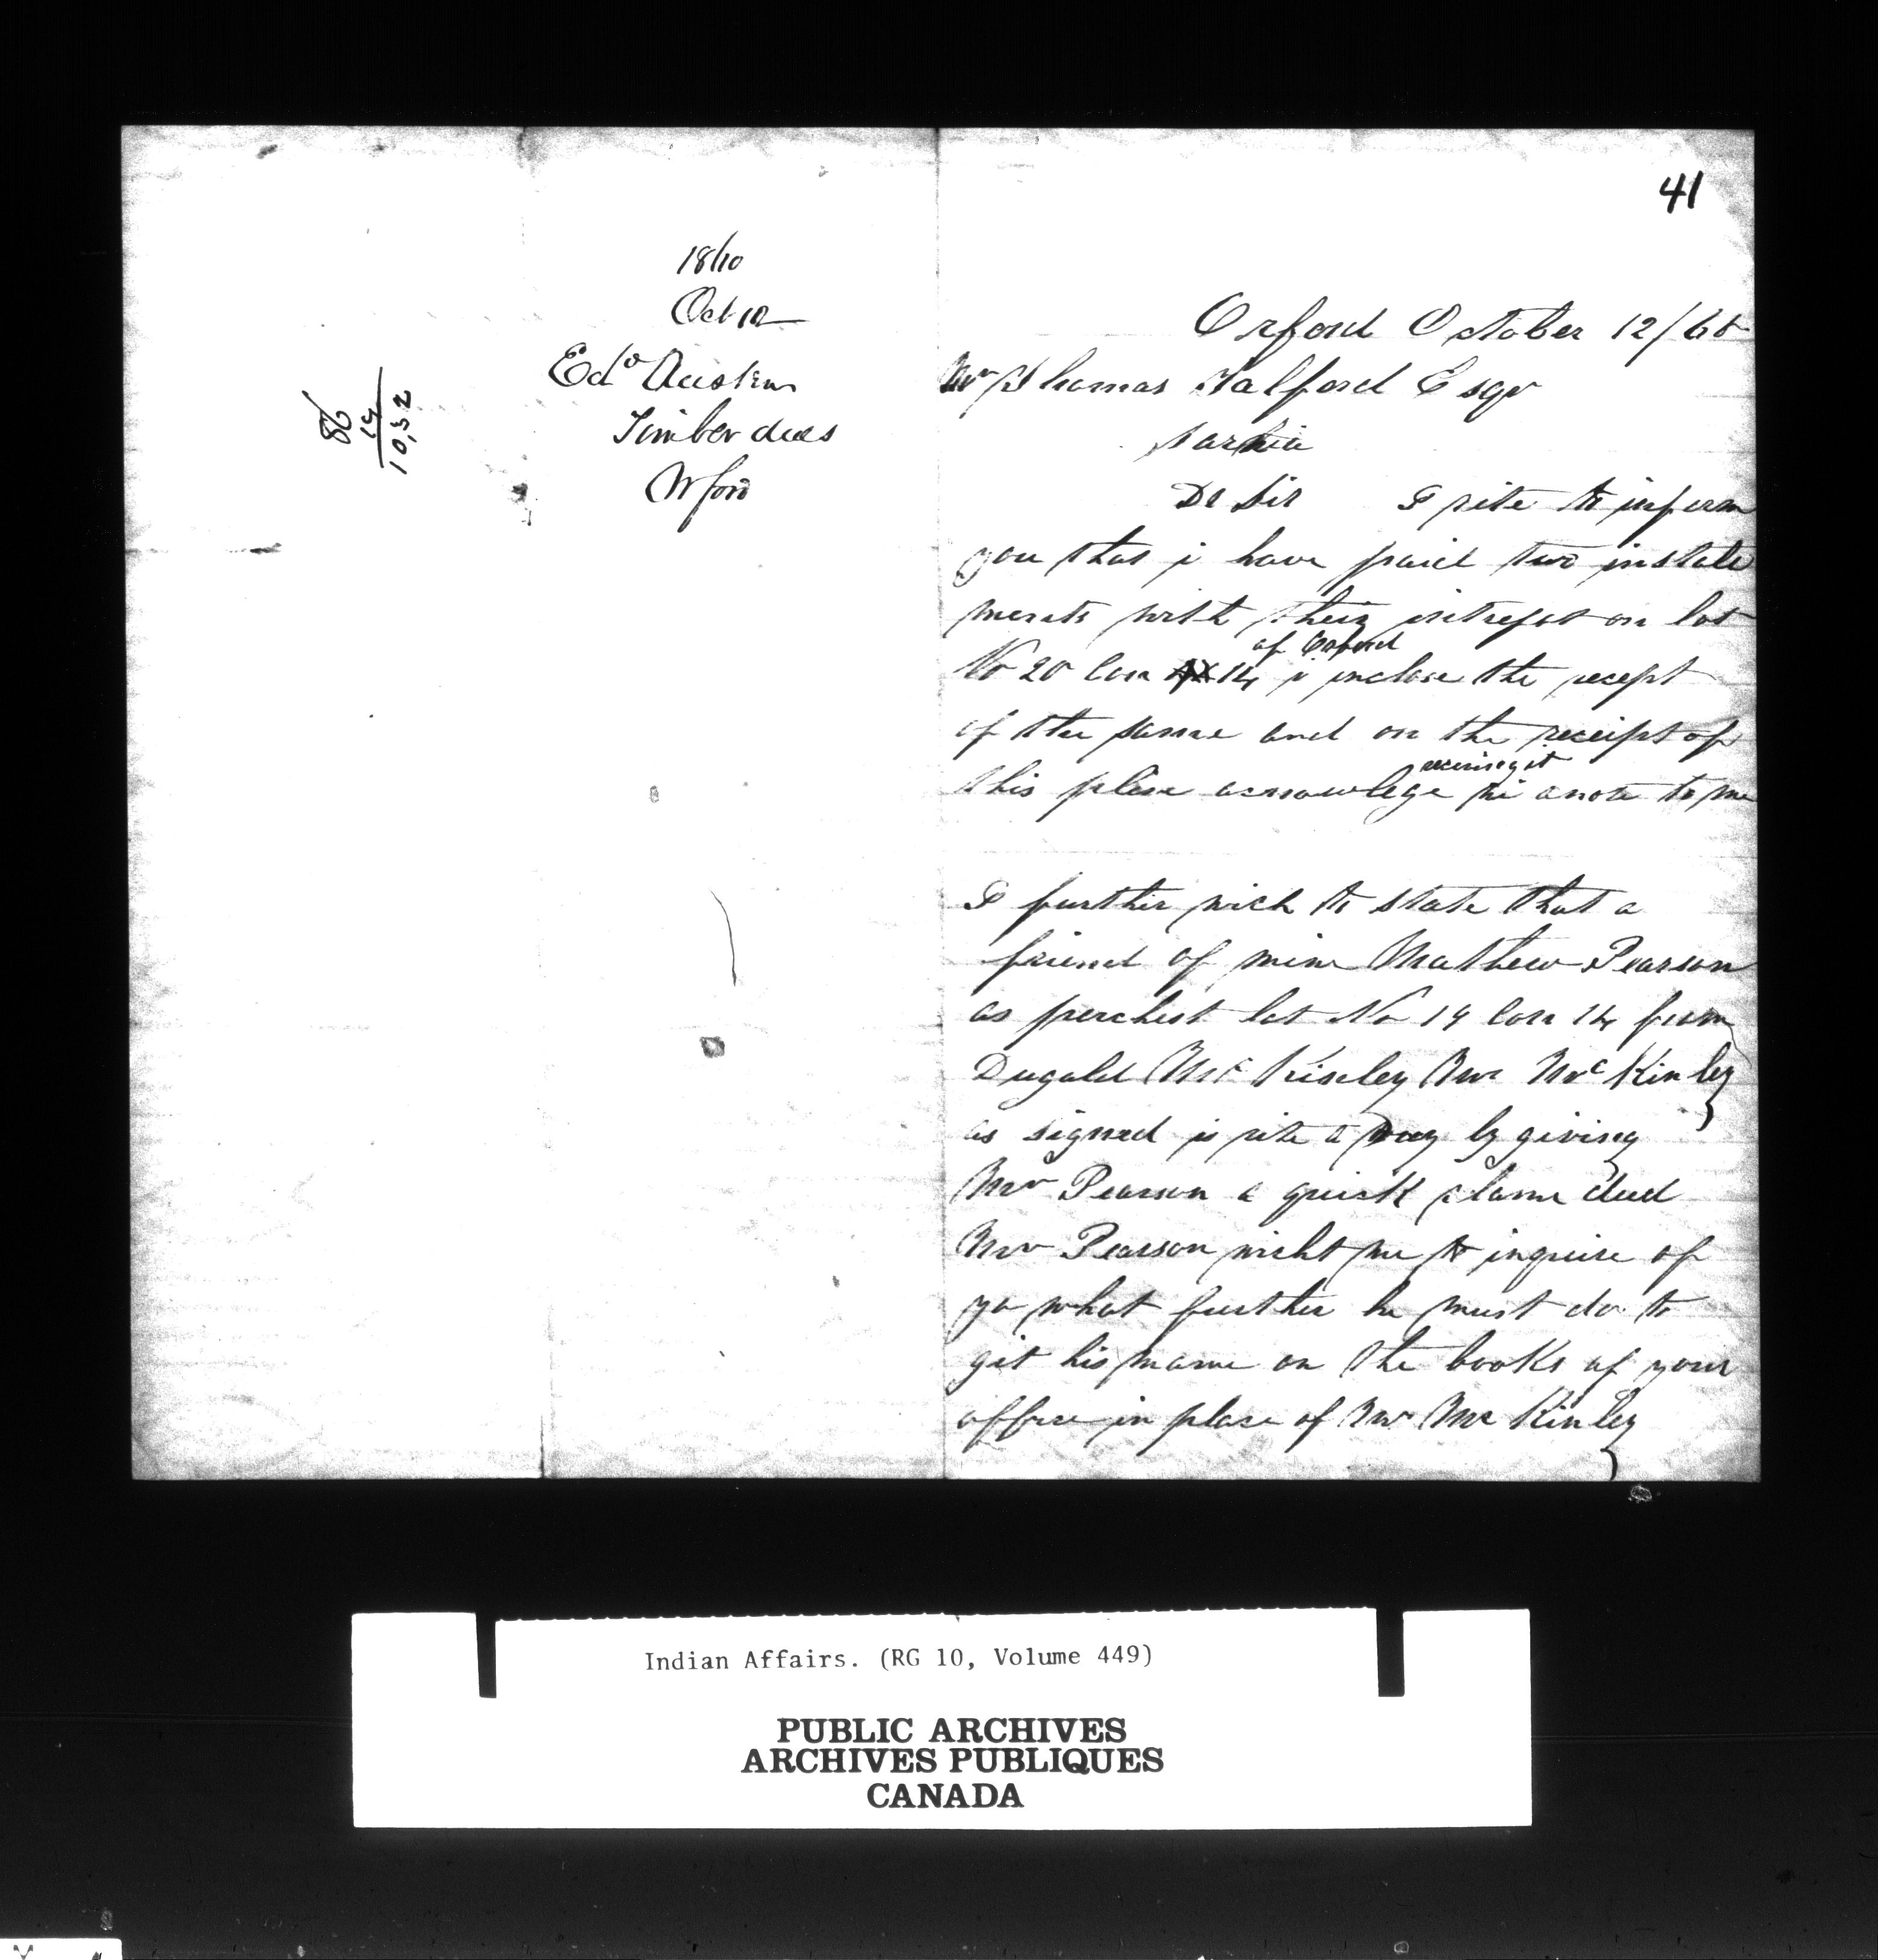 41
18/10
Oct 12
Edd Austin
Timber dues
Orford
86
12
10,32
Orford October 12/60
Mr Thomas Talford Esqr
Sarnia
Dr Sir I rite to inform
you that i have paid two instale
ments with their intrest on lot
of Orford
No 20 Con 14 i inclose the recept
of the same and on the receipt of
this plese acnowlege receiving it in a note to me
I further wich to state that a
friend of mine Mathew Pearson
as perchest lot No 19 Con 14 from
Dugald McKinley Mr McKinley
as signed is rite a way by giving
Mr Pearson a quick clame deed
Mr Pearson wicht me to inquire of
yo what further he must do to
git his name on the books of your
office in place of Mr McKinley
Indian Affairs. (RG 10, Volume 449)
PUBLIC ARCHIVES
ARCHIVES PUBLIQUES
CANADA